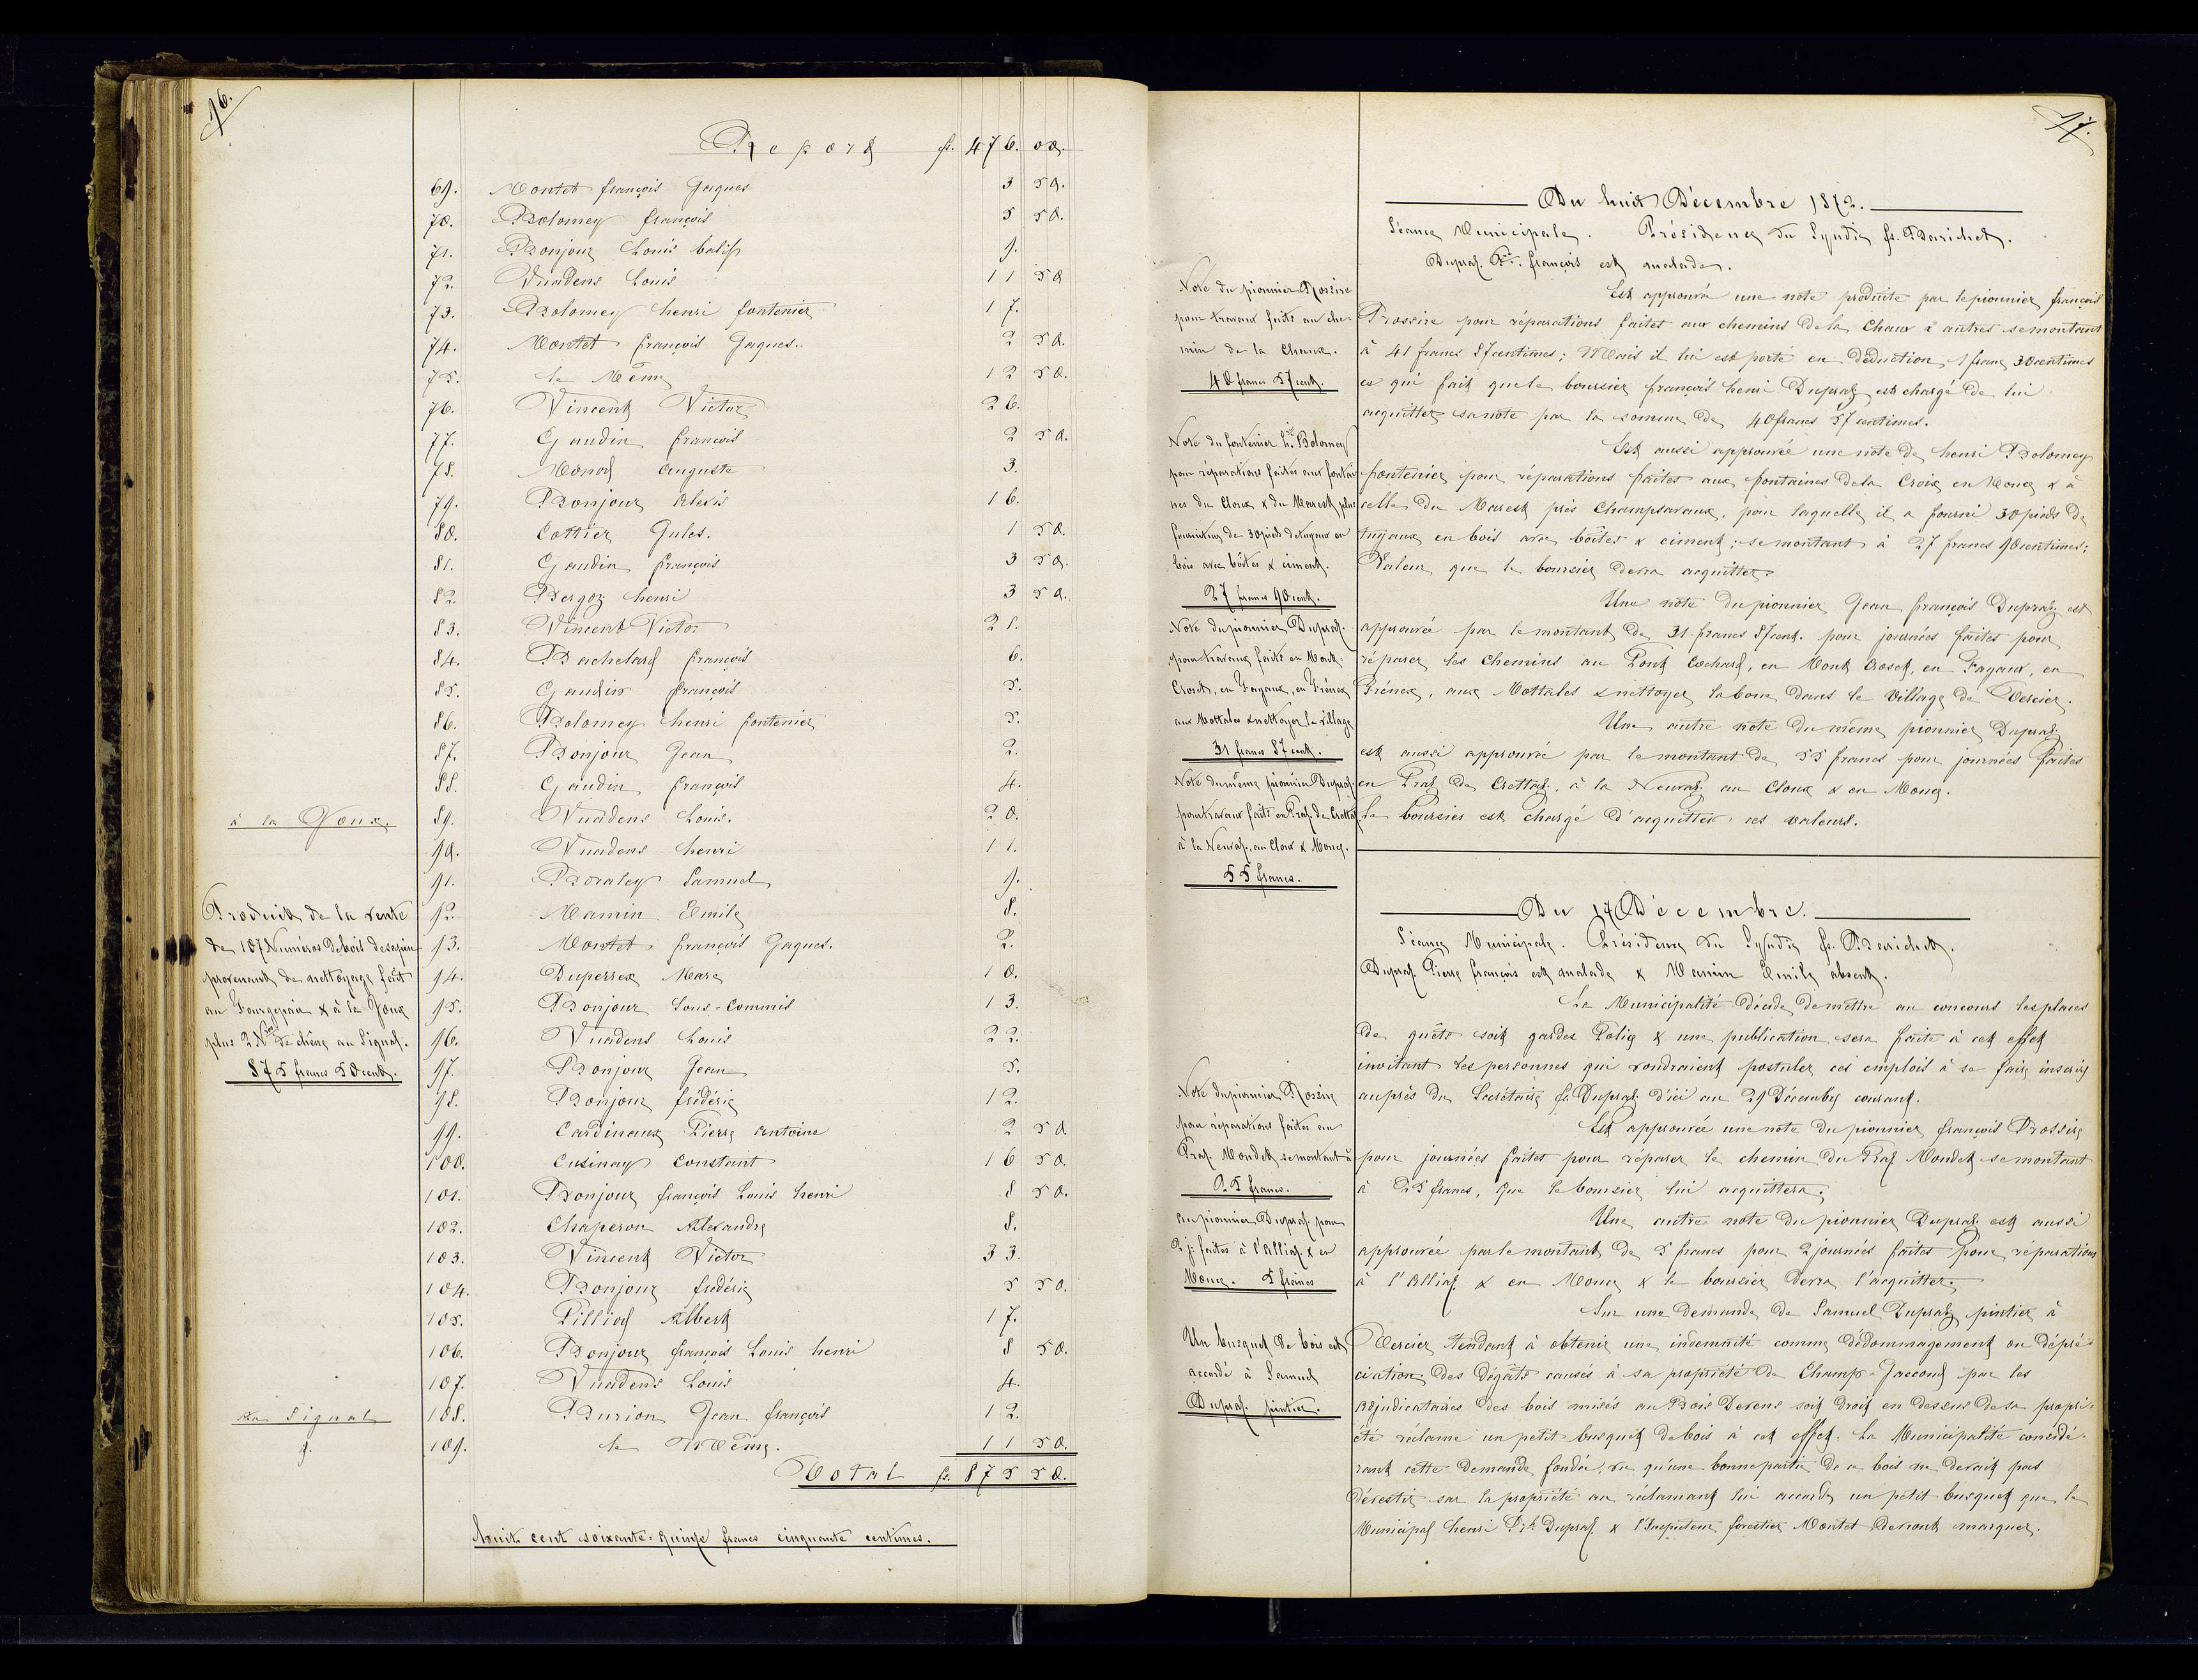 96.
Report fr. 476. 00.
69. Montet françois Jaques 3 50.
70. Bolomey françois 5 50.
71. Bonjour Louis 9.
72. Vuadens Louis 11 50
73. Bolomey henri fontenier 17.
74. Montet françois Jaques. 2 50.
75. le Même 12 50.
76. Vincent Victor 26.
77. Gaudin françois 2 50.
78. Monod auguste 3.
79. Bonjour Alexis 16.
80. Cottier Jules. 1 50.
81. Gaudin françois 3 50.
82. Bergoz henri 3 50.
83. Vincent Victor 21.
84. Bachelard françois 6.
85. Gaudin françois 5.
86. Bolomey henri fontenier 5.
87. Bonjour Jean 2.
88. Gaudin françois 4.
à la Joux. 89. Vuadens Louis. 20.
90. Vuadens henri 11.
91. Bovaley Samuel 9.
92. Mamin Emile 8.
93. Montet françois Jaques. 2.
94. Duperrex Marc 10.
95. Bonjour Sous-Commis 13.
96. Vuadens Louis 22.
97. Bonjour Jean 5.
98. Bonjour frédéric 12.
99. Cardinaux Pierre antoine 2 50.
100. Cusinay Constant 16 50.
101. Bonjour françois Louis henri 8 50.
102. Chaperon Alexandre 8.
103. Vincent Victor 33.
104. Bonjour frédéric 5 50.
105. Pilliod Albert 17.
106. Bonjour françois Louis henri 8 50.
107. Vuadens Louis 4.
au Signal 108. Burion Jean françois 12.
109. le Même. 11 50.
Total fr. 875 50.
huit cent soixante-quinze francs cinquante centimes.
Produit de la vente
de 107 Numéros de bois de sapin
provenant de nettoyage fait
au & à la Joux
plus 2 Nos de chêne au Signal.
875 francs 50 cent.
97.
Du huit Décembre 1872.
Séance Municipale. Présidence du Syndic fs. Barichet.
Dupraz Pre. françois est malade.
Est approuvée une note produite par le pionnier françois
Rossire pour réparations faites aux chemins de la Chaux & autres se montant
à 41 francs 87 centimes; Mais il lui est porté en déduction 1 franc 30 centimes
ce qui fait que le boursier françois henri Dupraz est chargé de lui
acquitter sa note par la somme de 40 francs 57 centimes.
Est aussi approuvée une note de henri Bolomey
fontenier pour réparations faites aux fontaines de la Croix en Moux & à
celle du Marest près Champsavaux, pour laquelle il a fourni 30 pieds de
tuyaux en bois avec boîtes & ciment; se montant à 27 francs 90 centimes;
Valeur que le boursier devra acquitter.
Une note du pionnier Jean françois Dupraz est
approuvée par le montant de 31 francs 87 cent. pour journées faites pour
réparer les Chemins au Pont Cochard, en Mont Croset, en Fayaux, en
Frénex, aux Mottales & nettoyer la boue dans le Village de Vercier.
Une autre note du même pionnier Dupraz
est aussi approuvée par le montant de 55 francs pour journées faites
en Praz de Crettaz, à la Neuvaz, au Cloux & en Moux.
Le Boursier est chargé d'acquitter ces valeurs.
Note du pionnier Rossire
pour travaux faits au che-
min de la Chaux.
40 francs 57 cent.
Note du fontenier hri. Bolomey
pour réparations faites aux fontai-
nes du Cloux & du Marest, plus
fourniture de 30 pieds de tuyaux en
bois avec boîtes & ciment.
27 francs 90 cent.
Note du pionnier Dupraz.
pour travaux faits en Mont-
Croset, en Fayaux, en Frénex
aux Mottales & nettoyer le village
31 francs 87 cent.
Note du même pionnier Dupraz
pour travaux faits en Praz. de Crettaz
à la Neuvaz, au Cloux & Moux.
55 francs.
Du 17 Décembre.
Séance Municipale. Présidence du Syndic fs. Barichet.
Dupraz Pierre françois est malade & Mamin Emile absent.
La Municipalité décide de mettre au concours les places
de guêts soit gardes Police & une publication sera faite à cet effet
invitant les personnes qui voudraient postuler ces emplois à se faire inscrire
auprès du Secrétaire fs. Dupraz d'ici au 29 Décembre courant.
Est approuvée une note du pionnier françois Rossire
pour journées faites pour réparer le chemin du Praz Mondet se montant
à 25 francs, que le boursier lui acquittera.
Une autre note du pionnier Dupraz est aussi
approuvée par le montant de 5 francs pour 2 journées faites pour réparations
à l'Alliaz & en Moux & le boursier devra l'acquitter.
Sur une demande de Samuel Dupraz pintier à
Vercier tendant à obtenir une indemnité comme dédommagement ou dépré-
ciation des dégâts causés à sa propriété de Champ-Jaccoud par les
adjudicataires des bois misés au Bois Devens soit droit en dessus de sa propri-
été réclame un petit busquet de bois à cet effet. La Municipalité considé-
rant cette demande fondée, vu qu'une bonne partie de ce bois ne devait pas
dévestir sur la propriété au réclamant lui accorde un petit busquet que le
Municipal henri Dupraz & l'Inspecteur forestier Montet devront marquer.
Note du pionnier Rossire
pour réparations faites au
Praz. Mondet se montant à
25 francs.
au pionnier Dupraz pour
2 j. faites à l'Alliaz & en
Moux. 5 francs
Un busquet de bois est
accordé à Samuel
Dupraz pintier.